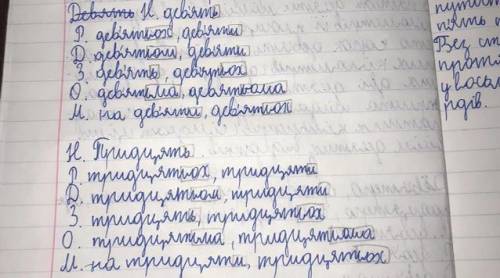 Девять Н. девять
Р. девятьох, девяти
Д. девятьом, девяти
З. девять, девятьох
О. девятьма, девятьома
М. на девяти, девятьох
Н. Тридцять
Р. тридцятьох, тридцяти
Д. тридцятьом, тридцяти
З. тридцять, тридцятьох
О. тридцятьма, тридцятьома
М. на тридцяти, тридцятьох
пять
Без
проти